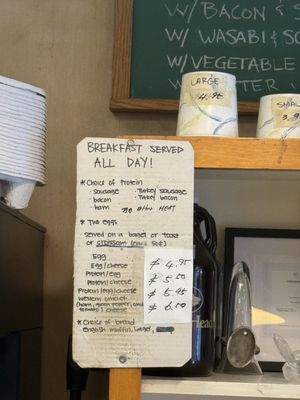 W/ BACON & S
W/ WASABI & SO
W/ VEGETABLE
W/ 
LARGE
4.95
SMALL
3.9
BREAKFAST SERVED
ALL DAY!
* Choice of Protein
· sausage · Turkey sausage
bacon · Turkey bacon
ham NO OTHER MEAT
* The eggs
served on a bagel or toast
or
Egg
Egg/cheese
$ 4.95
Protein/egg
Protein/cheese
$ 5.50
Protein/egg/cheese
$ 5.95
Western omelet
(ham, green pepper, and
tomato) cheese
$ 6.50
* Choice of bread
English muffin, bagel,